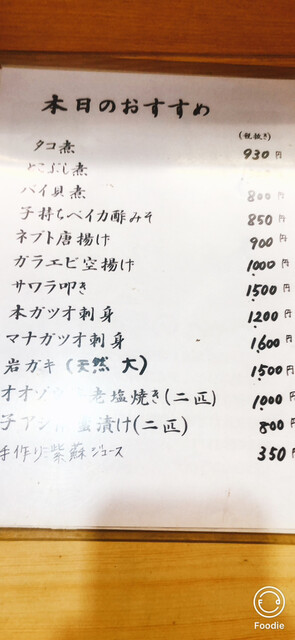 本日のおすすめ
(税抜き)
タコ煮 930円
とこぶし煮
バイ貝煮 800円
子持ちベイカ酢みそ 850円
ネブト唐揚げ 900円
ガラエビ空揚げ 1000円
サワラ叩き 1500円
本ガツオ刺身 1200円
マナガツオ刺身 1,600円
岩ガキ(天然 大) 1500円
オオゾ 塩焼き(二匹) 1,000円
子アジ 漬け(二匹) 800円
手作り紫蘇ジュース 350円
Foodie